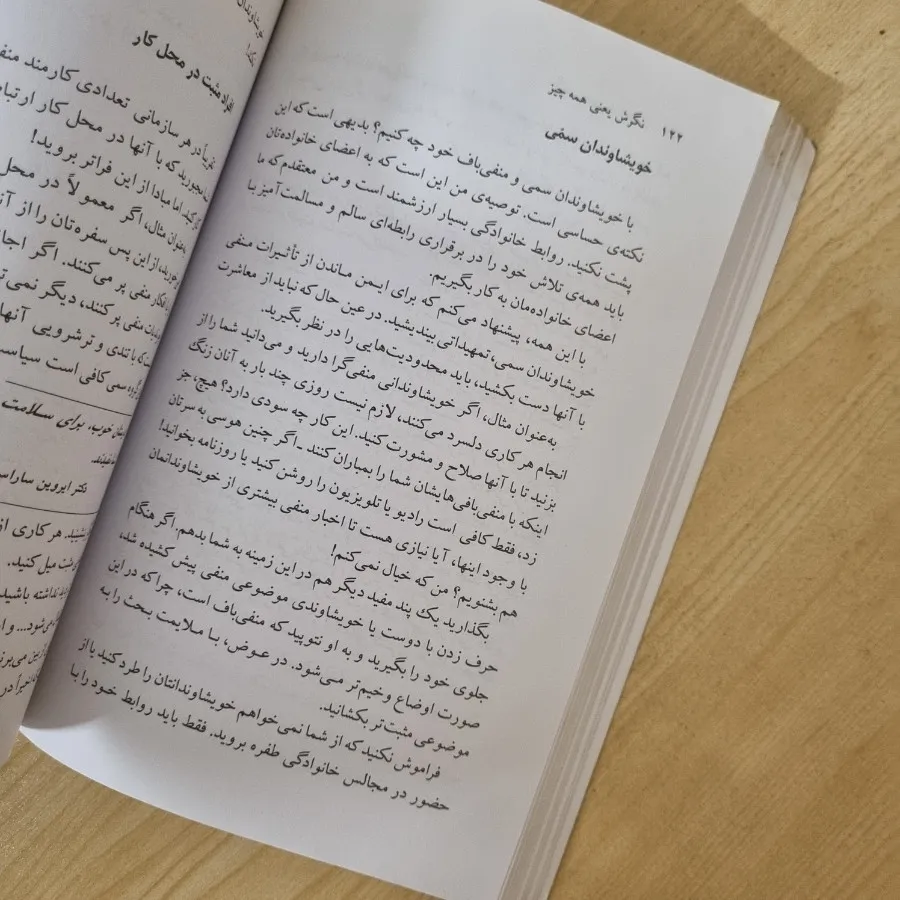 ۱۲۲ نگرش یعنی همه چیز
خویشاوندان سمی
با خویشاوندان سمی و منفی‌باف خود چه کنیم؟ بدیهی است که این
نکته‌ی حساسی است. توصیه‌ی من این است که به اعضای خانواده‌تان
پشت نکنید. روابط خانوادگی بسیار ارزشمند است و من معتقدم که ما
باید همه‌ی تلاش خود را در برقراری رابطه‌ای سالم و مسالمت‌آمیز با
اعضای خانواده‌مان به کار بگیریم.
با این همه، پیشنهاد می‌کنم که برای ایمن ماندن از تأثیرات منفی
خویشاوندان سمی، تمهیداتی بیندیشید. در عین حال که نباید از معاشرت
با آنها دست بکشید، باید محدودیت‌هایی را در نظر بگیرید.
به‌عنوان مثال، اگر خویشاوندانی منفی‌گرا دارید و می‌دانید شما را از
انجام هر کاری دلسرد می‌کنند، لازم نیست روزی چند بار به آنان زنگ
بزنید تا با آنها صلاح و مشورت کنید. این کار چه سودی دارد؟ هیچ، جز
اینکه با منفی‌بافی‌هایشان شما را بمباران کنند ـ اگر چنین هوسی به سرتان
زد، فقط کافی است رادیو یا تلویزیون را روشن کنید یا روزنامه بخوانید!
با وجود اینها، آیا نیازی هست تا اخبار منفی بیشتری از خویشاوندانمان
هم بشنویم؟ من که خیال نمی‌کنم!
بگذارید یک پند مفید دیگر هم در این زمینه به شما بدهم. اگر هنگام
حرف زدن با دوست یا خویشاوندی موضوعی منفی پیش کشیده شد،
جلوی خود را بگیرید و به او نتوپید که منفی‌باف است، چراکه در این
صورت اوضاع وخیم‌تر می‌شود. در عوض، با ملایمت بحث را به
موضوعی مثبت‌تر بکشانید.
فراموش نکنید که از شما نمی‌خواهم خویشاوندانتان را طرد کنید یا از
حضور در مجالس خانوادگی طفره بروید. فقط باید روابط خود را با
خویشاوندان
افراد مثبت در محل کار
تقریباً در هر سازمانی تعدادی کارمند
مجبورید که با آنها در محل کار
اما مبادا از این فراتر بروید!
به‌عنوان مثال، اگر معمولاً در محل
از این پس سفره‌تان را از
افکار منفی پر می‌کنند. اگر
منفی پر کنند، دیگر
که با تندی و ترشرویی آنها
سمی کافی است
خوب، برای سلامت
دکتر ایروین
هر کاری از
میل کنید.
نداشته باشید
می‌شود... و
از بین
در